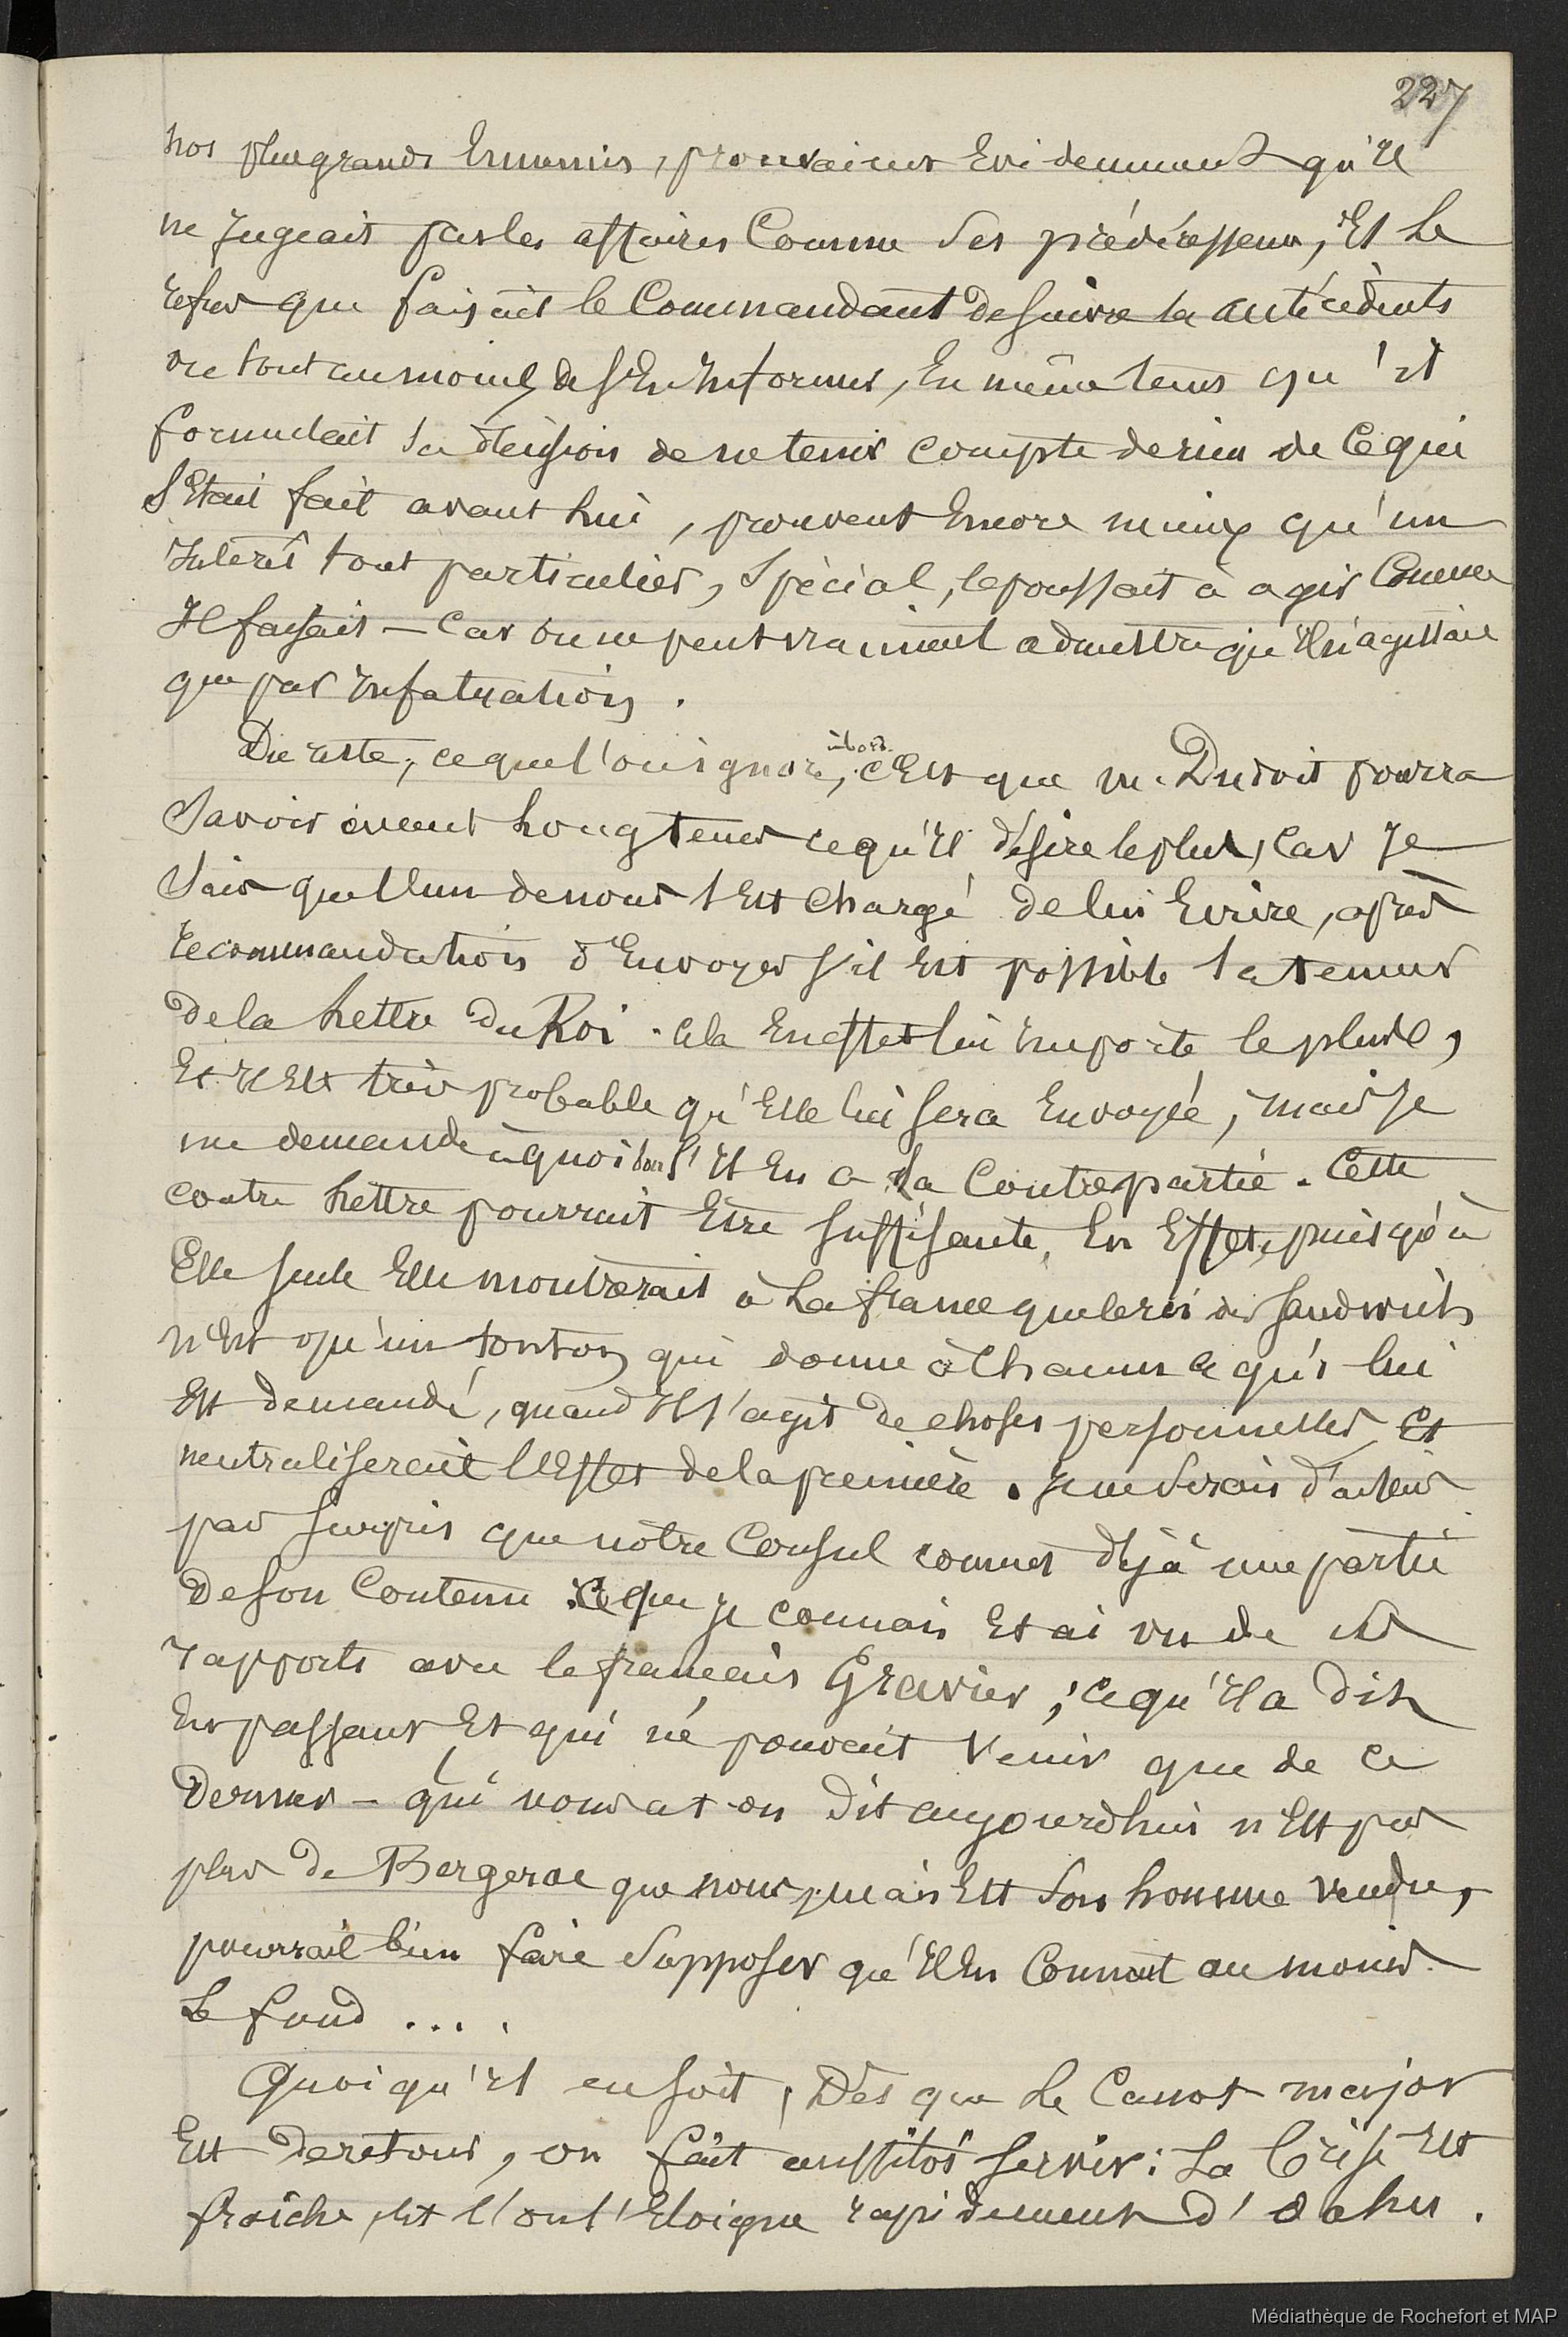 227
nos plus grands Ennemis, prouvaient Evidemment qu'Il
ne Jugeait pas les affaires Comme Ses prédécesseurs, Et Le
refus que faisait le Commandant de suivre les antécédents
ou tout au moins de s'En Informer, En même tems qu'il
formulait sa décision de ne tenir compte de rien de Ce qui
s'Etait fait avant Lui, prouvent Encore mieux qu'un
Interêt tout particulier, Spécial, le poussait à agir Comme
Il faisait — Car on ne peut vraiment admettre qu'Il n'agissait
que par Infatuation.
Du reste, ce que l'on ignore à bord, c'Est que m. Dudoit pourra
Savoir avant Longtems ce qu'Il désire le plus, Car Je
Sais que l'un de nous s'Est Chargé de lui Ecrire, après
recommandation d'Envoyer s'il Est possible la teneur
de la Lettre du Roi. Cela En effet lui Importe le plus,
Et Il Est très probable qu'Elle lui sera Envoyée, mais Je
me demande à quoi bon s'Il En a La Contrepartie. Cette
contre Lettre pourrait Etre suffisante, En Effet, puisqu'à
Elle seule Elle montrerait à La france que le roi des Sandwich
n'Est qu'un tonton qui donne à Chacun ce qui lui
Est demandé, quand Il s'agit de choses personnelles, Et
neutraliserait l'Effet de la première. Je ne Serais d'ailleurs
pas surpris que nôtre Consul connut déjà une partie
De son Contenu. Ce que Je connais Et ai vu de ses
rapports avec le francais Gravier; ce qu'Il a dit
En passant Et qui ne pouvait Venir que de ce
Dernier — qui nous at-on dit aujourdhui n'Est pas
plus de Bergerac que nous, mais Est Son homme vendu,
pourrait bien faire Supposer qu'Il En Connait au moins
Le fond ....
Quoiqu'Il en soit, Dès que Le Canot major
Est de retour, on fait aussitôt servir: La brise Est
fraîche, Et l'on s'Eloigne rapidement d'Oahu.
Médiathèque de Rochefort et MAP